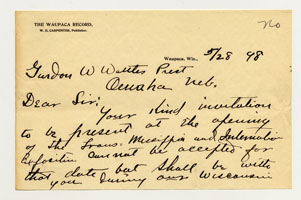 no
THE WAUPACA RECORD,
W. E. CARPENTER, Publisher.
Waupaca, Wis., 5/28 98
Gurdon W Wattles Prest
Omaha Neb.
Dear Sir:
Your kind invitation
to be present at the opening
of the Trans. Missippi and Internation
Exposition cannot be accepted for
that date but shall be with
you during our Wisconsin